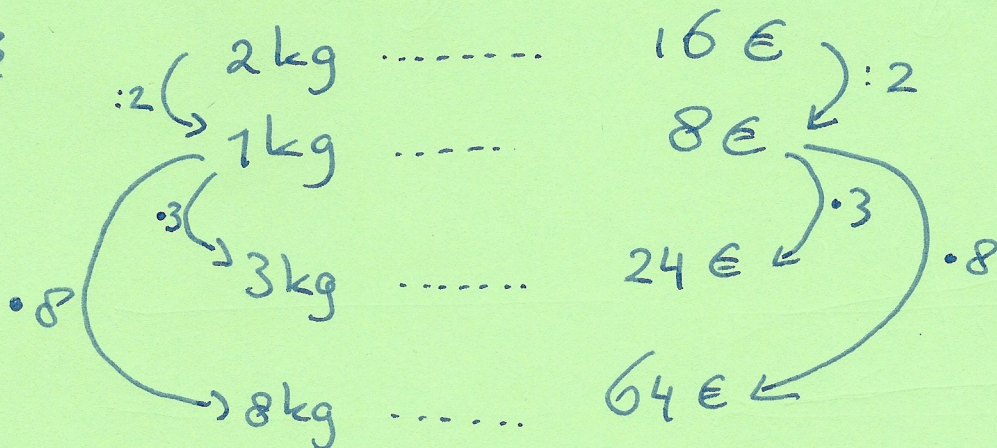 2 kg ......... 16 €
:2 :2
1 kg ...... 8 €
·3 ·3
3 kg ....... 24 €
·8 ·8
8 kg ...... 64 €